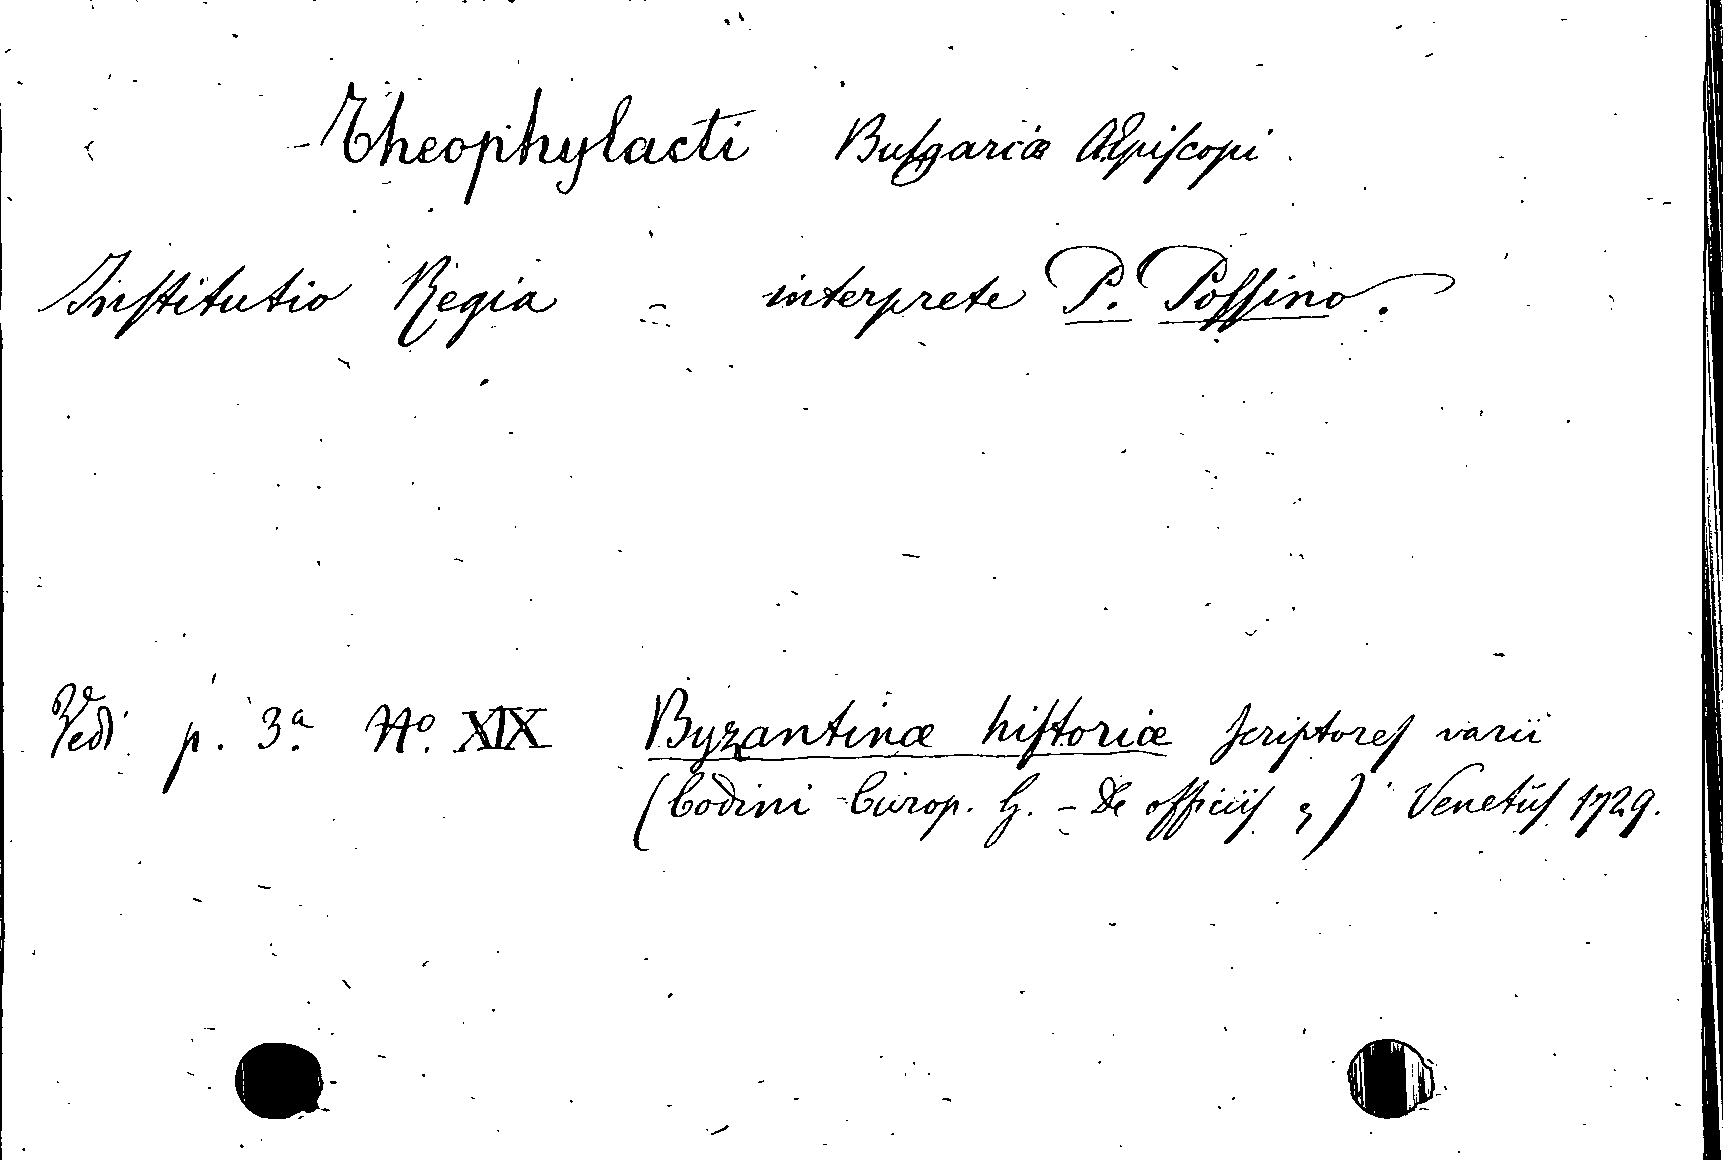 Theophylacti Bulgariæ AEpiscopi
Institutio Regia - interprete P. Possino.
Vedi p. 3ª Nº. XIX Byzantinæ historiæ scriptores varii
(Codini Curop. G. - De officiis ,) Venetiis 1729.